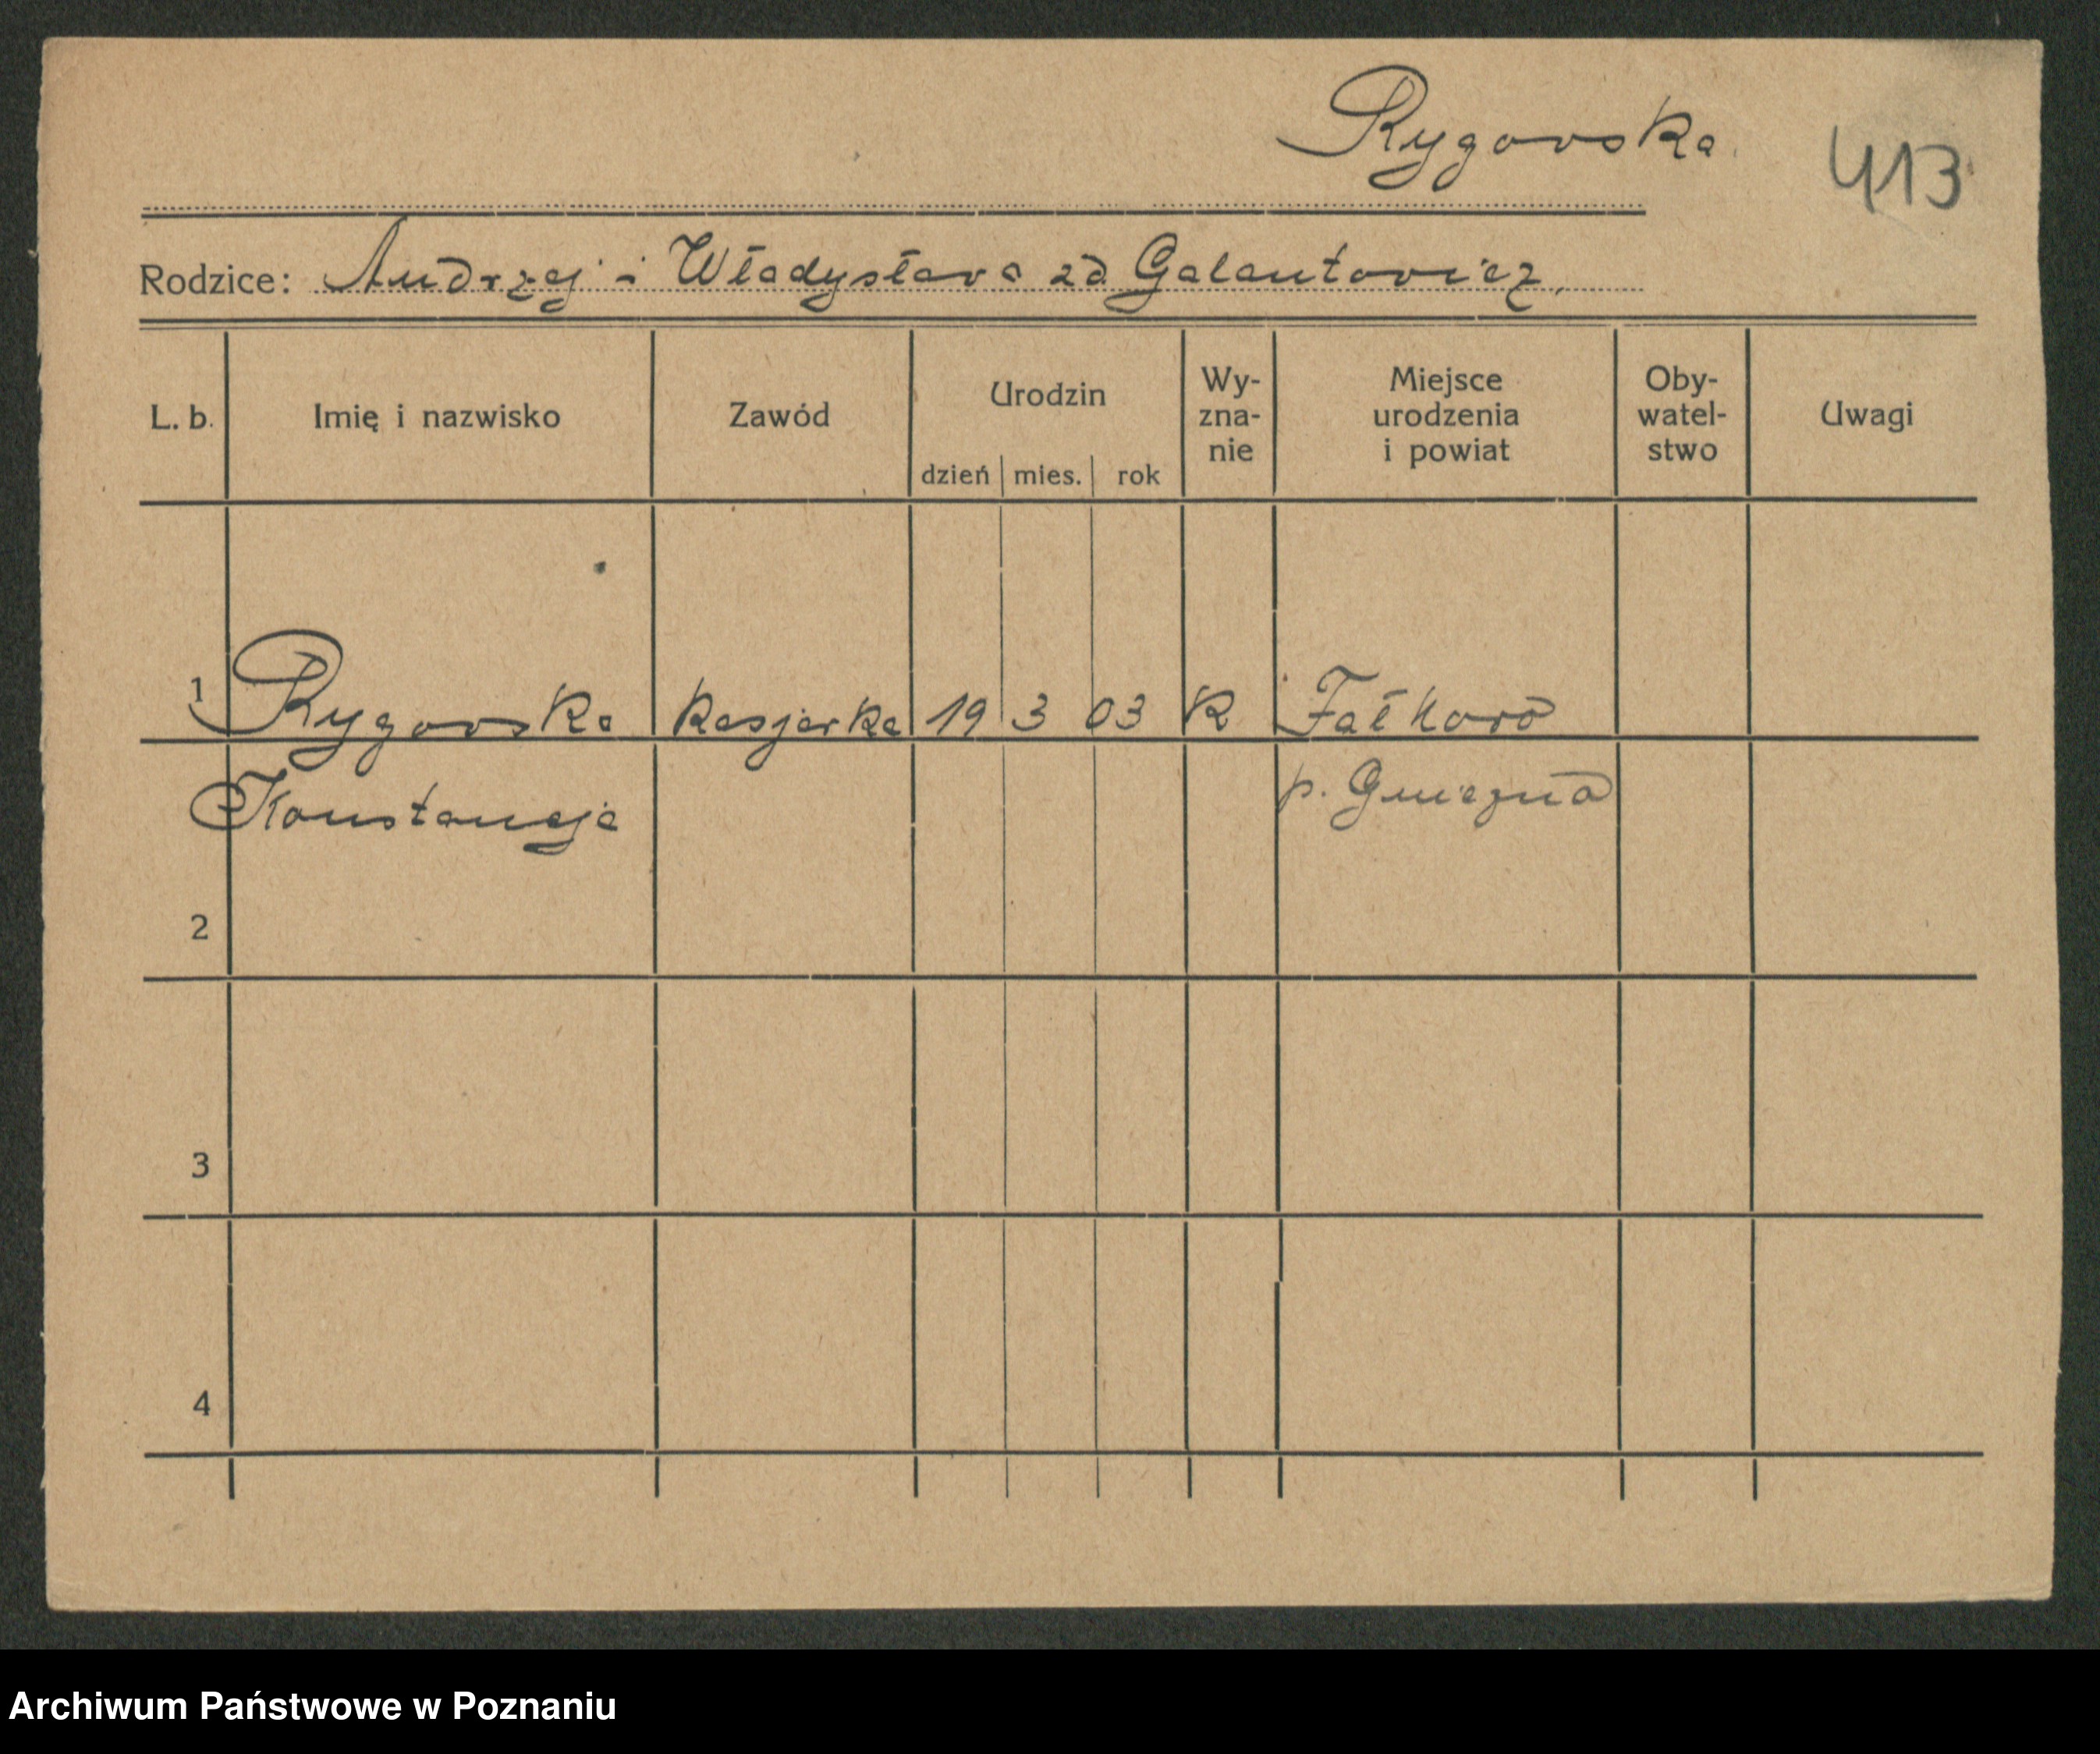 Rygowska
413
Rodzice: Andrzej i Władysława zd. Galantowicz
L. b. Imię i nazwisko Zawód Urodzin Wy-zna-nie Miejsce urodzenia i powiat Oby-watel-stwo Uwagi
dzień mies. rok
1 Rygowska kasjerka 19 3 03 K Fałkowo
Konstancja p. Gniezno
2
3
4
Archiwum Państwowe w Poznaniu